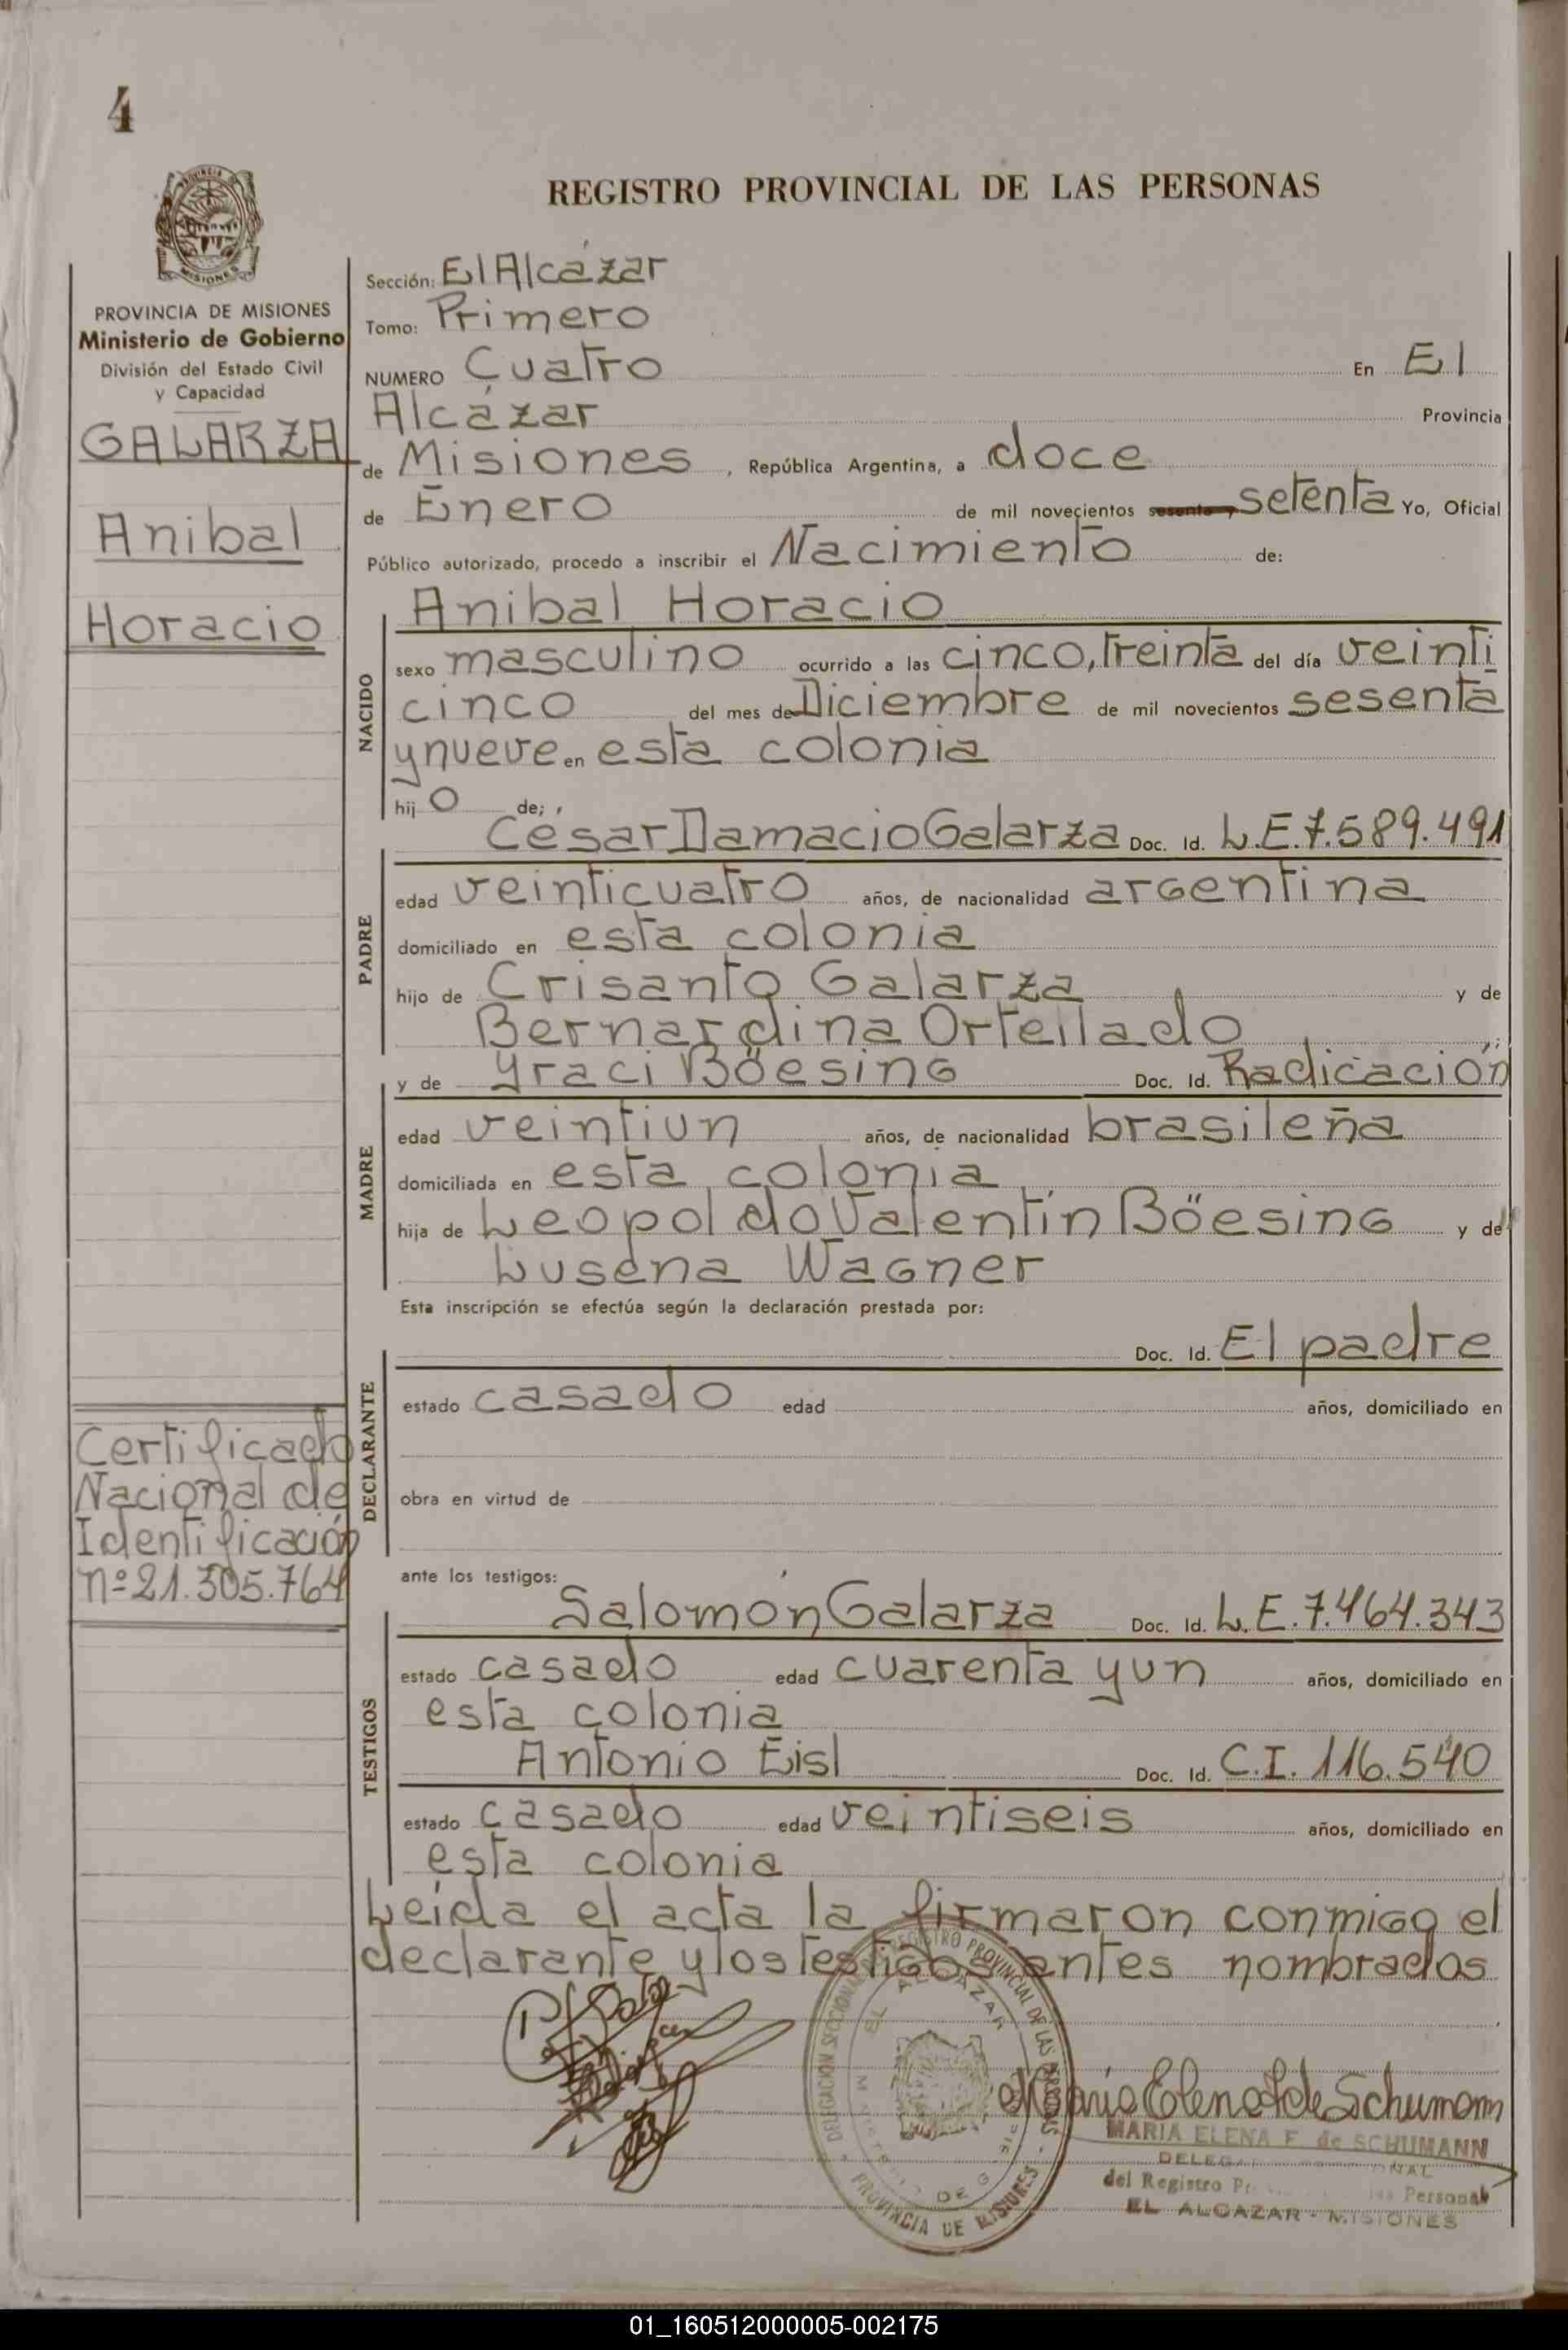 4
REGISTRO PROVINCIAL DE LAS PERSONAS
MISIONES
PROVINCIA DE MISIONES
Ministerio de Gobierno
División del Estado Civil
y Capacidad
GALARZA
Anibal
Horacio
Sección: El Alcázar
Tomo: Primero
NUMERO Cuatro En El
Alcázar Provincia
de Misiones, República Argentina, a doce
de Enero de mil novecientos sesenta y setenta Yo, Oficial
Público autorizado, procedo a inscribir el Nacimiento de:
NACIDO
Anibal Horacio
sexo masculino ocurrido a las cinco, treinta del día veinti
cinco del mes de Diciembre de mil novecientos sesenta
y nueve en esta colonia
hij o de;
PADRE
César Damacio Galarza Doc. Id. L.E. 7.589.491
edad veinticuatro años, de nacionalidad argentina
domiciliado en esta colonia
hijo de Crisanto Galarza y de
Bernardina Ortellado ;
MADRE
y de Yraci Böesing Doc. Id. Radicación
edad veintiun años, de nacionalidad brasileña
domiciliada en esta colonia
hija de Leopoldo Valentín Böesing y de
Lusena Wagner
Esta inscripción se efectúa según la declaración prestada por:
DECLARANTE
Doc. Id. El padre
estado casado edad años, domiciliado en
obra en virtud de
Certificado
Nacional de
Identificación
nº 21.305.764
ante los testigos:
TESTIGOS
Salomón Galarza Doc. Id. L.E. 7.464.343
estado casado edad cuarenta y un años, domiciliado en
esta colonia
Antonio Eisl Doc. Id. C.I. 116.540
estado casado edad veintiseis años, domiciliado en
esta colonia
Leída el acta la firmaron conmigo el
declarante y los testigos antes nombrados
DELEGACION SECCIONAL REGISTRO PROVINCIAL DE LAS PERSONAS
EL ALCAZAR
PROVINCIA DE MISIONES
Maria Elena F de Schumann
MARIA ELENA F. de SCHUMANN
del Registro Personas
EL ALCAZAR - MISIONES
01_160512000005-002175